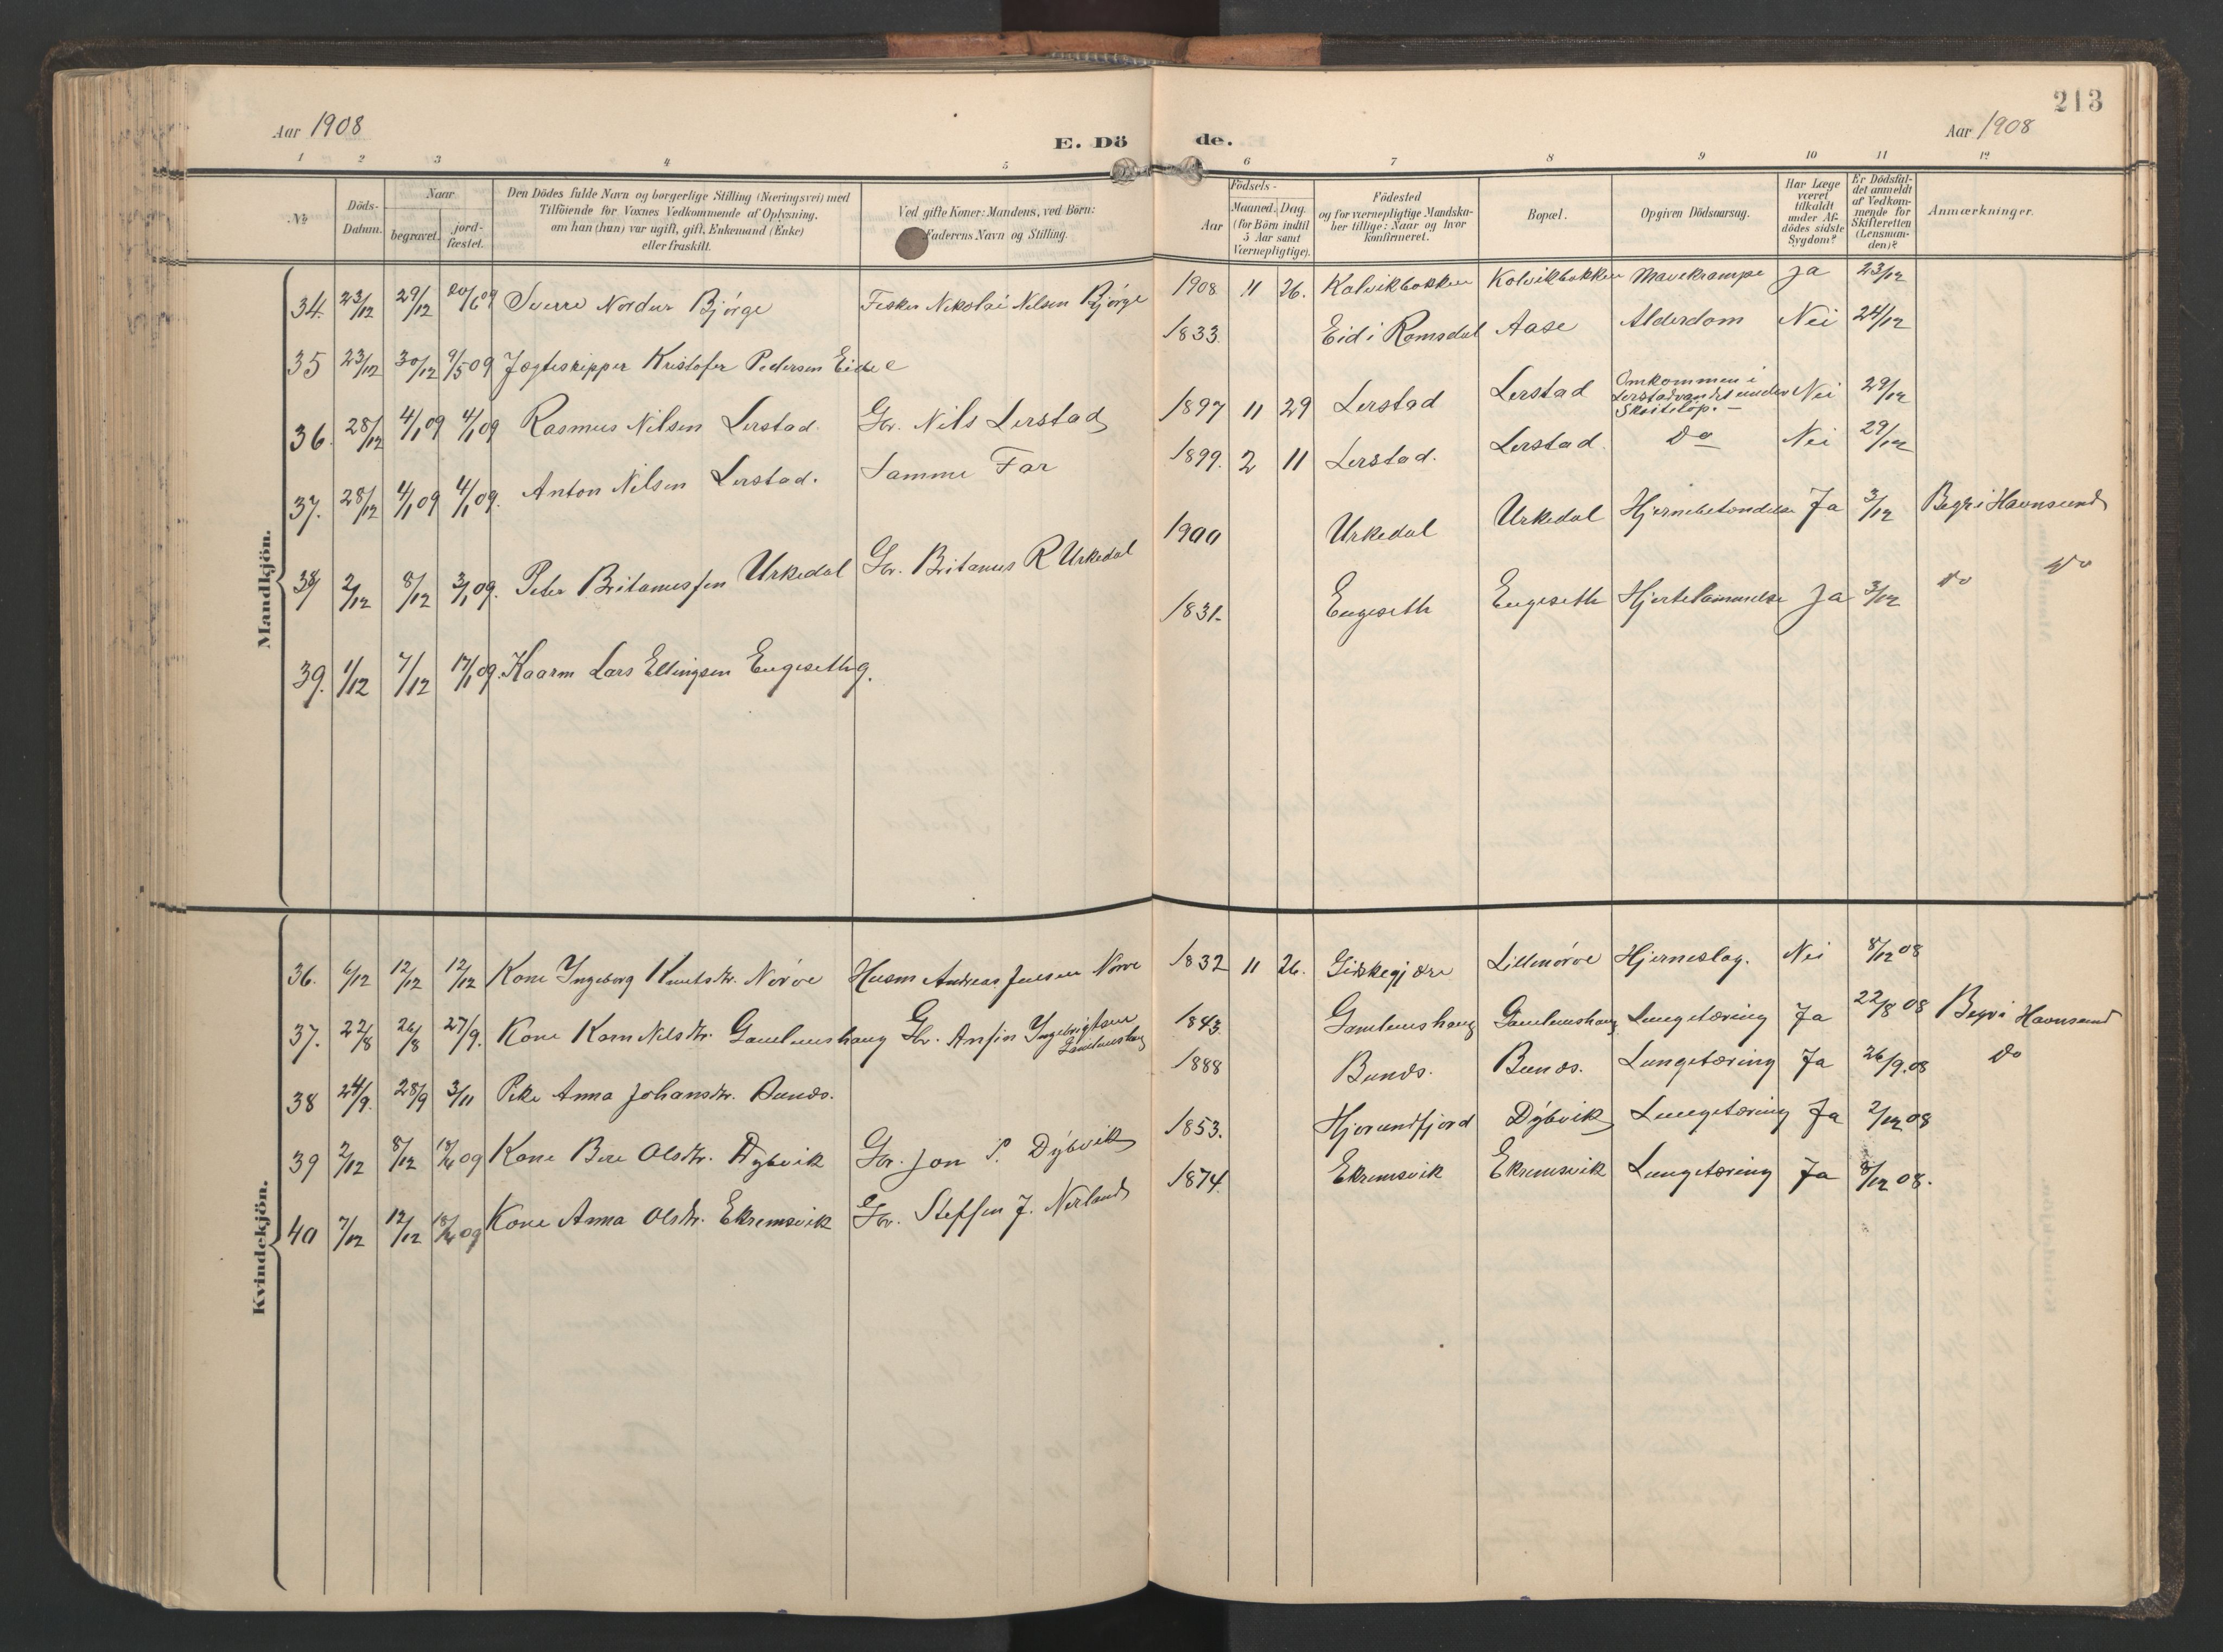 213
Aar 1908
E. Döde.
Aar 1908
1 2 3 4 5 6 7 8 9 10 11 12
No
Döds-Datum.
Naar
begravet.
jord-fæstet.
Den Dödes fulde Navn og borgerlige Stilling (Næringsvei) med
Tilföiende for Voxnes Vedkommende af Oplysning,
om han (hun) var ugift, gift, Enkemand (Enke)
eller fraskilt.
Ved gifte Koner: Mandens, ved Börn:
Faderens Navn og Stilling.
Födsels-
Aar
Maaned. Dag.
(for Börn indtil
5 Aar samt
Værnepligtige).
Födested
og for værnepligtige Mandska-
ber tillige: Naar og hvor
konfirmeret.
Bopæl.
Opgiven Dödsaarsag.
Har Læge
været
tilkaldt
under Af-
dödes sidste
Sygdom?
Er Dödsfal-
det anmeldt
af Vedkom-
mende for
Skifteretten
(Lensman-
den)?
Anmærkninger.
Mandkjön.
34. 23/12 29/12 20/6 09 Sverre Nordur Bjørge Fisker Nikolai Nilsen Bjørge 1908 11 26. Kalvikbakken Kolvikbakken Mavekrampe Ja 23/12
35 23/12 30/12 9/5 09 Jægteskipper Kristofer Pedersen Eide e 1833. Eid i Romsdal Aase Alderdom Nei 24/12
36. 28/12 4/1 09 4/1 09 Rasmus Nilsen Lerstad. Gbr. Nils Lerstad 1897 11 29 Lerstad Lerstad Omkommen i
Lerstadvandet under
Skøiteløp. — Nei 29/12
37. 28/12 4/1 09 4/1 09. Anton Nilsen Lerstad. Samme Far 1899. 2 11 Lerstad. Lerstad. Do Nei 29/12
38 2/12 8/12 3/1 09. Peter Britanussen Urkedal Gbr. Britanus R Urkedal 1900 Urkedal Urkedal Hjernebetændelse Ja 3/12 Begr i Havnsund
39. 1/12 7/12 17/1 09. Kaarm Lars Ellingsen Engeseth g. 1831. Engeseth Engeseth Hjertelammelse Ja 3/12 Do Do
Kvindekjön.
36. 6/12 12/12 12/12 Kone Ingeborg Knutsdtr. Nørve Husm Andreas Julsen Nørve 1832 11 26. Giskegjære Lillenørve Hjerneslag. Nei 8/12 08
37. 22/8 26/8 27/9. Kone Karn Nilsdtr. Gamlemshaug Gbr. Ansin Ingebrigtsen
Gamlemshaug 1843. Gamlemshaug Gamlemshaug Lungetæring Ja 22/8 08 Begr i Havnsund
38 24/9. 28/9 3/11 Pike Anna Johansdtr. Bunds. 1888 Bunds. Bunds. Lungetæring Ja 26/9.08 Do
39 2/12 8/12 09 Kone Bere Olsdtr. Dybvik Gbr. Jon P. Dybvik 1853. Hjørundfjord Dybvik Lungetæring Ja 2/12 08
40 7/12 12/12 09 Kone Anna Olsdtr. Ekremsvik Gbr. Steffen J. Nerland 1874. Ekremsvik Ekremsvik Lungetæring Ja 8/12 08.